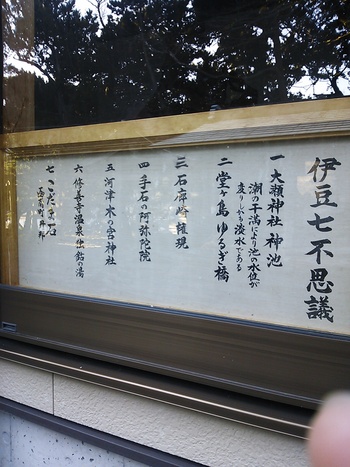 伊豆七不思議
一 大瀬神社 神池
潮の干満により池の水位が
変りしかも淡水である
二 堂ヶ島 ゆるぎ橋
三 石廊崎権現
四 手石の阿弥陀院
五 河津 木の宮神社
六 修善寺温泉 独鈷の湯
七 こだま石